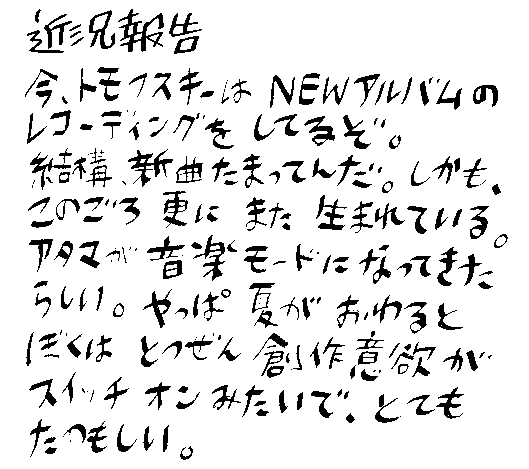 近況報告
今、トモフスキーは NEWアルバムの
レコーディングを してるぞ。
結構、新曲たまってんだ。しかも、
このごろ 更に また 生まれている。
アタマが 音楽モードになってきた
らしい。やっぱ 夏が おわると
ぼくは とつぜん 創作意欲が
スイッチ オンみたいで、とても
たのもしい。